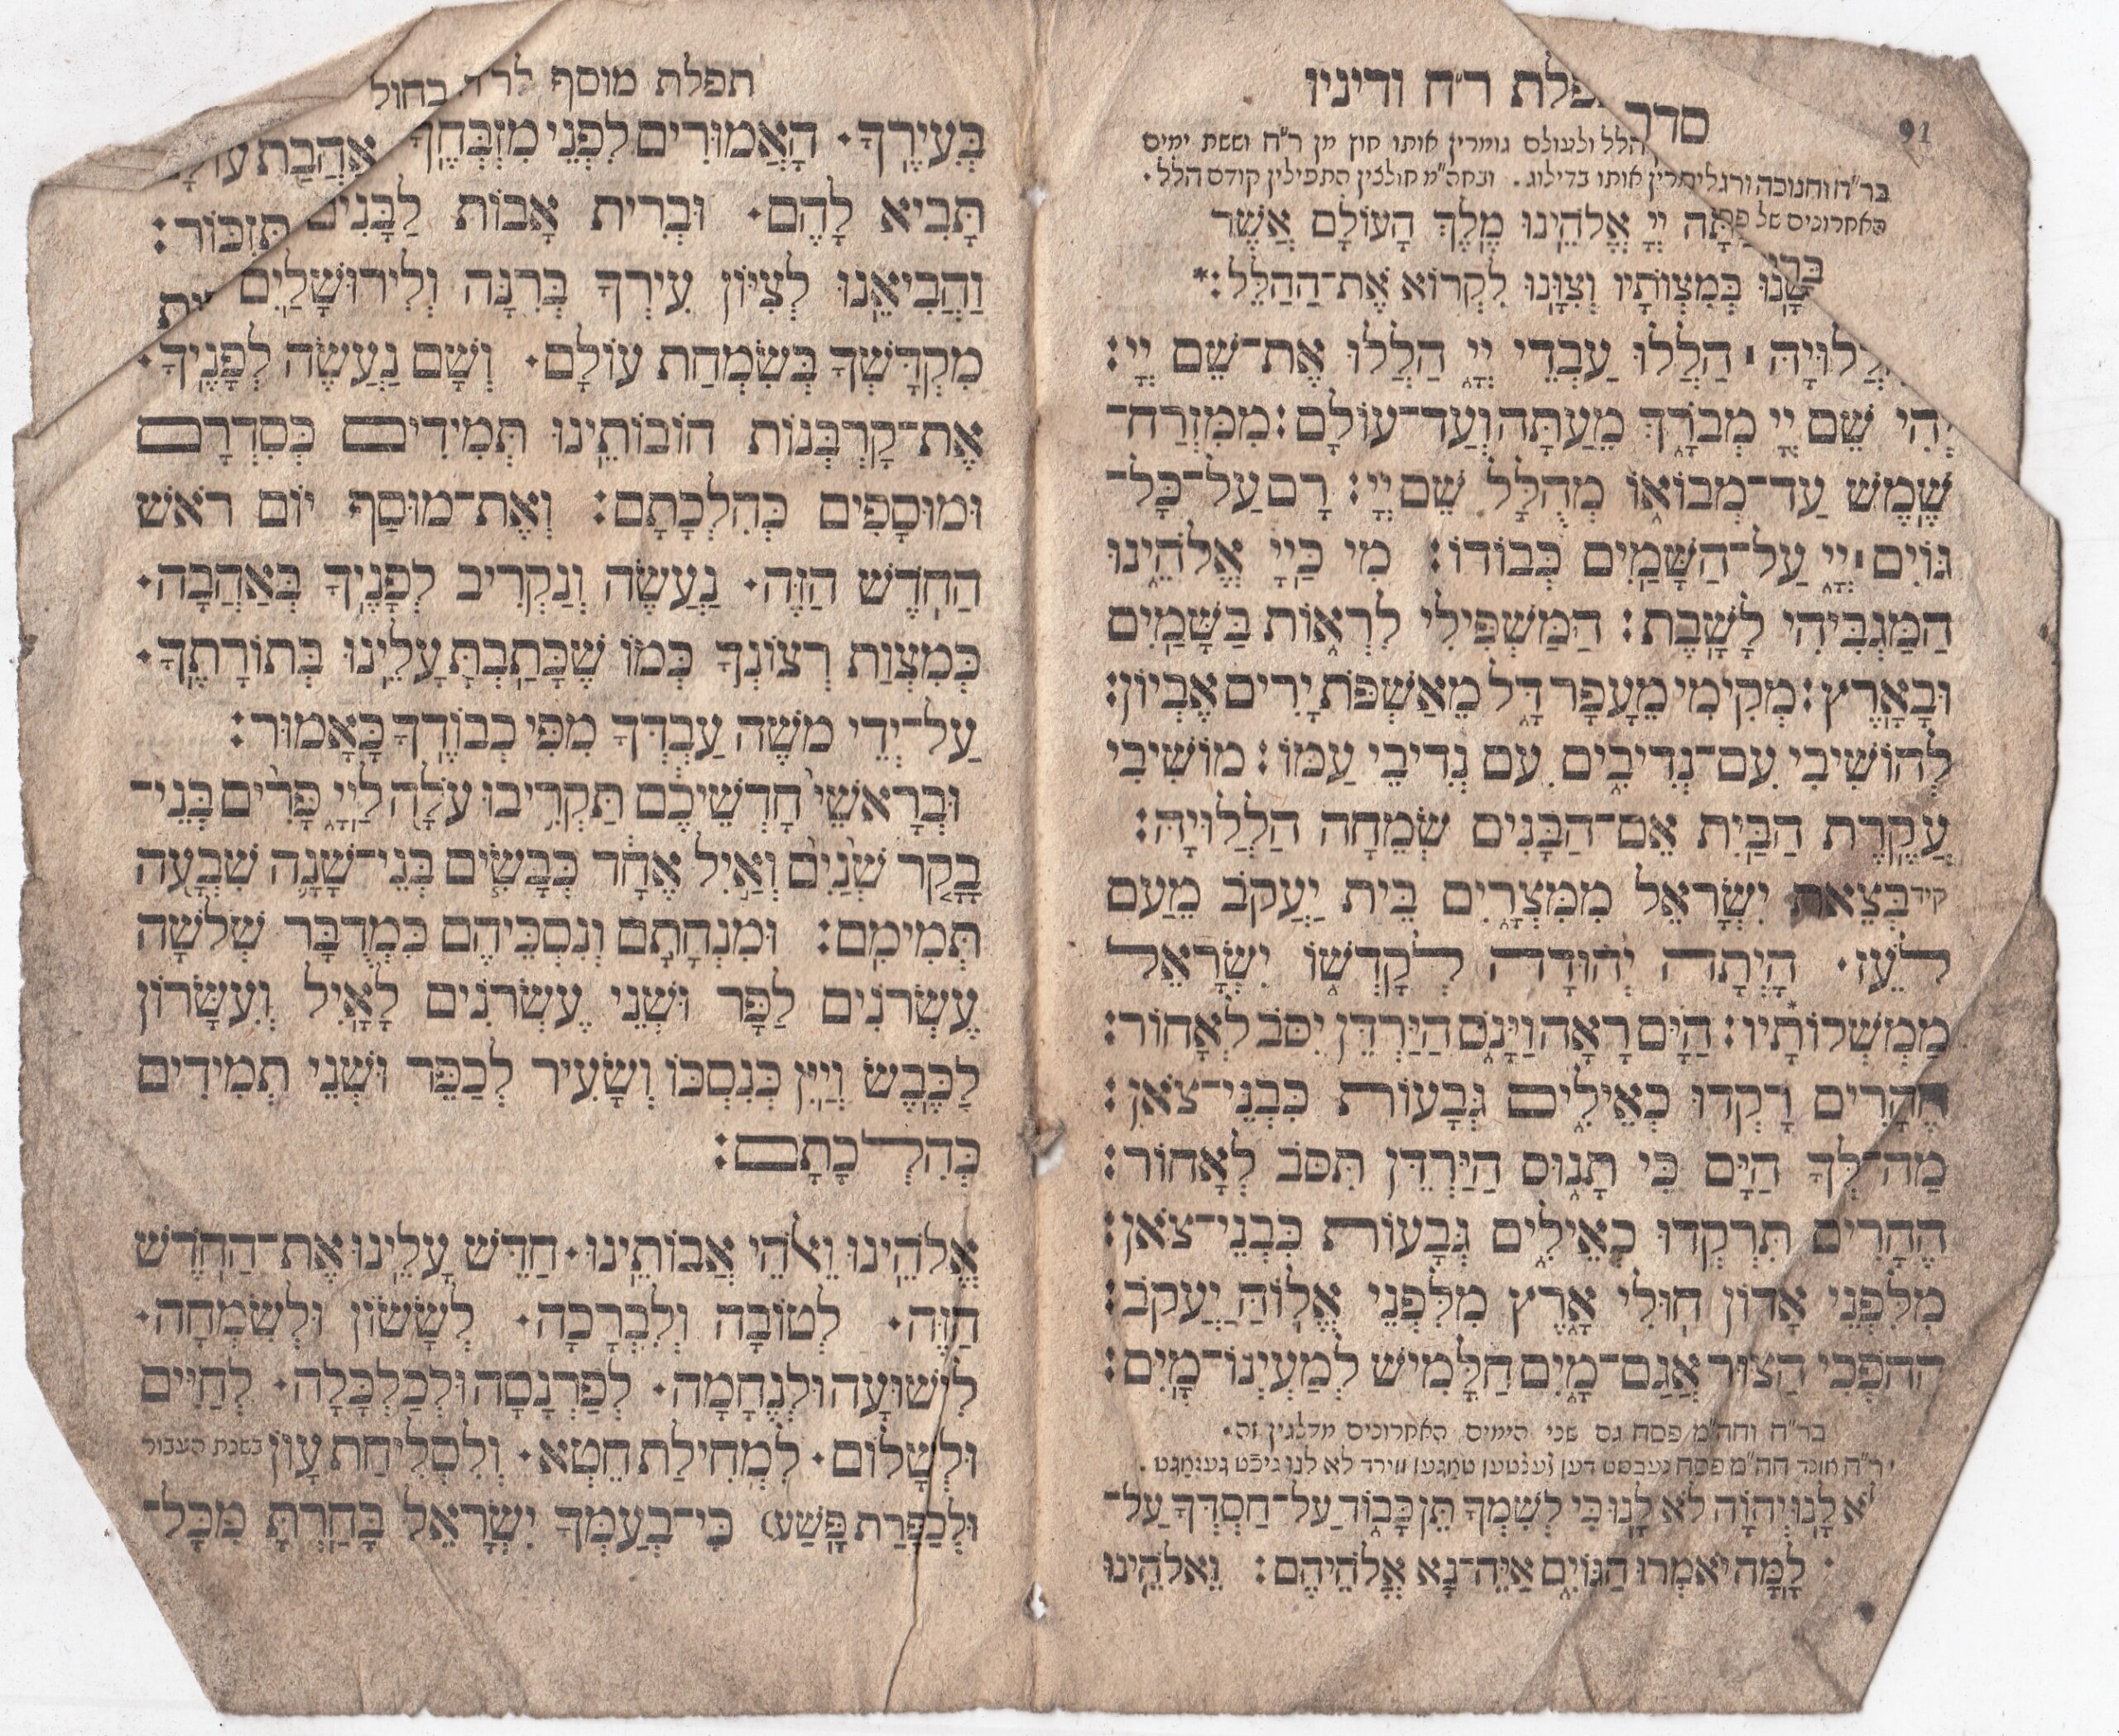 91
סדר תפלת ר״ח ודיניו
הלל ולעולם גומרין אותו חוץ מן ר״ח וששת ימים
בר״ח וחנוכה ורגלים קורין אותו בדילוג. ובחה״מ חולצין התפילין קודם הלל.
האחרונים של פסח
אַתָּה יְיָ אֱלֹהֵֽינוּ מֶֽלֶךְ הָעוֹלָם אֲשֶׁר
שָֽׁנוּ בְּמִצְוֹתָיו וְצִוָּֽנוּ לִקְרוֹא אֶת־הַהַלֵּל:*
לְלוּיָהּ ׀ הַלֲלוּ עַבְדֵי יְיָ הַלֲלוּ אֶת־שֵׁם יְיָ:
יְהִי שֵׁם יְיָ מְבוֹרָךְ מֵעַתָּה וְעַד־עוֹלָם: מִמִּזְרַח־
שֶׁמֶשׁ עַד־מְבוֹאוֹ מְהֻלָּל שֵׁם יְיָ: רָם עַל־כָּל־
גּוֹיִם ׀ יְיָ עַל־הַשָּׁמַיִם כְּבוֹדוֹ: מִי כַּיְיָ אֱלֹהֵינוּ
הַמַּגְבִּיהִי לָשָׁבֶת: הַמַּשְׁפִּילִי לִרְאוֹת בַּשָּׁמַיִם
וּבָאָרֶץ: מְקִימִי מֵעָפָר דָּל מֵאַשְׁפֹּת יָרִים אֶבְיוֹן:
לְהוֹשִׁיבִי עִם־נְדִיבִים עִם נְדִיבֵי עַמּוֹ: מוֹשִׁיבִי
עֲקֶרֶת הַבַּיִת אֵם־הַבָּנִים שְׂמֵחָה הַלֲלוּיָהּ:
קיד בְּצֵאת יִשְׂרָאֵל מִמִּצְרָיִם בֵּית יַעֲקֹב מֵעַם
לֹעֵז. הָיְתָה יְהוּדָה לְקָדְשׁוֹ יִשְׂרָאֵל
מַמְשְׁלוֹתָיו: הַיָּם רָאָה וַיָּנֹס הַיַּרְדֵּן יִסֹּב לְאָחוֹר:
הֶהָרִים רָקְדוּ כְאֵילִים גְּבָעוֹת כִּבְנֵי־צֹאן:
מַה־לְּךָ הַיָּם כִּי תָנוּס הַיַּרְדֵּן תִּסֹּב לְאָחוֹר:
הֶהָרִים תִּרְקְדוּ כְאֵילִים גְּבָעוֹת כִּבְנֵי־צֹאן:
מִלִּפְנֵי אָדוֹן חוּלִי אָרֶץ מִלִּפְנֵי אֱלוֹהַּ יַעֲקֹב:
הַהֹפְכִי הַצּוּר אֲגַם־מָיִם חַלָּמִישׁ לְמַעְיְנוֹ־מָיִם:
בר״ח וחה״מ פסח גם שני הימים האחרונים מדלגין זה.
ר״ח אונד חה״מ פסח נעבסט דען לעצטען טאגען ווירד לא לנו ניכֿט געזאגט.
לֹא לָנוּ יְהוָֹה לֹא לָנוּ כִּי לְשִׁמְךָ תֵּן כָּבוֹד עַל־חַסְדְּךָ עַל־
לָמָּה יֹאמְרוּ הַגּוֹיִם אַיֵּה־נָא אֱלֹהֵיהֶם: וֵאלֹהֵינוּ
תפלת מוסף לר״ח בחול
בְּעִירֶךָ. הָאֲמוּרִים לִפְנֵי מִזְבְּחֶךָ אַהֲבַת עוֹלָם
תָּבִיא לָהֶם. וּבְרִית אָבוֹת לַבָּנִים תִּזְכּוֹר:
וַהֲבִיאֵנוּ לְצִיּוֹן עִירְךָ בְּרִנָּה וְלִירוּשָׁלַיִם בֵּית
מִקְדָּשְׁךָ בְּשִׂמְחַת עוֹלָם. וְשָׁם נַעֲשֶׂה לְפָנֶיךָ.
אֶת־קָרְבְּנוֹת חוֹבוֹתֵינוּ תְּמִידִים כְּסִדְרָם
וּמוּסָפִים כְּהִלְכָתָם: וְאֶת־מוּסַף יוֹם רֹאשׁ
הַחֹדֶשׁ הַזֶּה. נַעֲשֶׂה וְנַקְרִיב לְפָנֶיךָ בְּאַהֲבָה.
כְּמִצְוַת רְצוֹנְךָ כְּמוֹ שֶׁכָּתַבְתָּ עָלֵינוּ בְּתוֹרָתֶךָ.
עַל־יְדֵי מֹשֶׁה עַבְדֶּךָ מִפִּי כְבוֹדֶךָ כָּאָמוּר:
וּבְרָאשֵׁי חָדְשֵׁיכֶם תַּקְרִיבוּ עֹלָה לַיְיָ פָּרִים בְּנֵי־
בָקָר שְׁנַיִם וְאַיִל אֶחָד כְּבָשִׂים בְּנֵי־שָׁנָה שִׁבְעָה
תְּמִימִם: וּמִנְחָתָם וְנִסְכֵּיהֶם כִּמְדֻבָּר שְׁלֹשָׁה
עֶשְׂרֹנִים לַפָּר וּשְׁנֵי עֶשְׂרֹנִים לָאָיִל וְעִשָּׂרוֹן
לַכֶּבֶשׂ וְיַיִן כְּנִסְכּוֹ וְשָׂעִיר לְכַפֵּר וּשְׁנֵי תְמִידִים
כְּהִלְכָתָם:
אֱלֹהֵינוּ וֵאלֹהֵי אֲבוֹתֵינוּ. חַדֵּשׁ עָלֵינוּ אֶת־הַחֹדֶשׁ
הַזֶּה. לְטוֹבָה וְלִבְרָכָה. לְשָׂשׂוֹן וּלְשִׂמְחָה.
לִישׁוּעָה וּלְנֶחָמָה. לְפַרְנָסָה וּלְכַלְכָּלָה. לְחַיִּים
וּלְשָׁלוֹם. לִמְחִילַת חֵטְא. וְלִסְלִיחַת עָוֹן בשנת העבור
וּלְכַפָּרַת פָּשַׁע) כִּי־בְעַמְּךָ יִשְׂרָאֵל בָּחַרְתָּ מִכָּל־